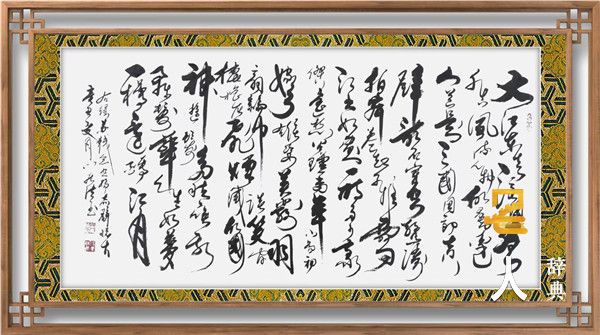 大江东去浪淘尽
千古风流人物故垒西边
人道是三国周郎赤
壁乱石穿空惊涛
拍岸卷起千堆雪
江山如画一时多少豪
杰遥想公瑾当年小乔初
嫁了雄姿英发羽
扇纶巾谈笑间
樯橹灰飞烟灭故国
神游多情应笑我
早生华发人生如梦
一樽还酹江月
名人
辞典